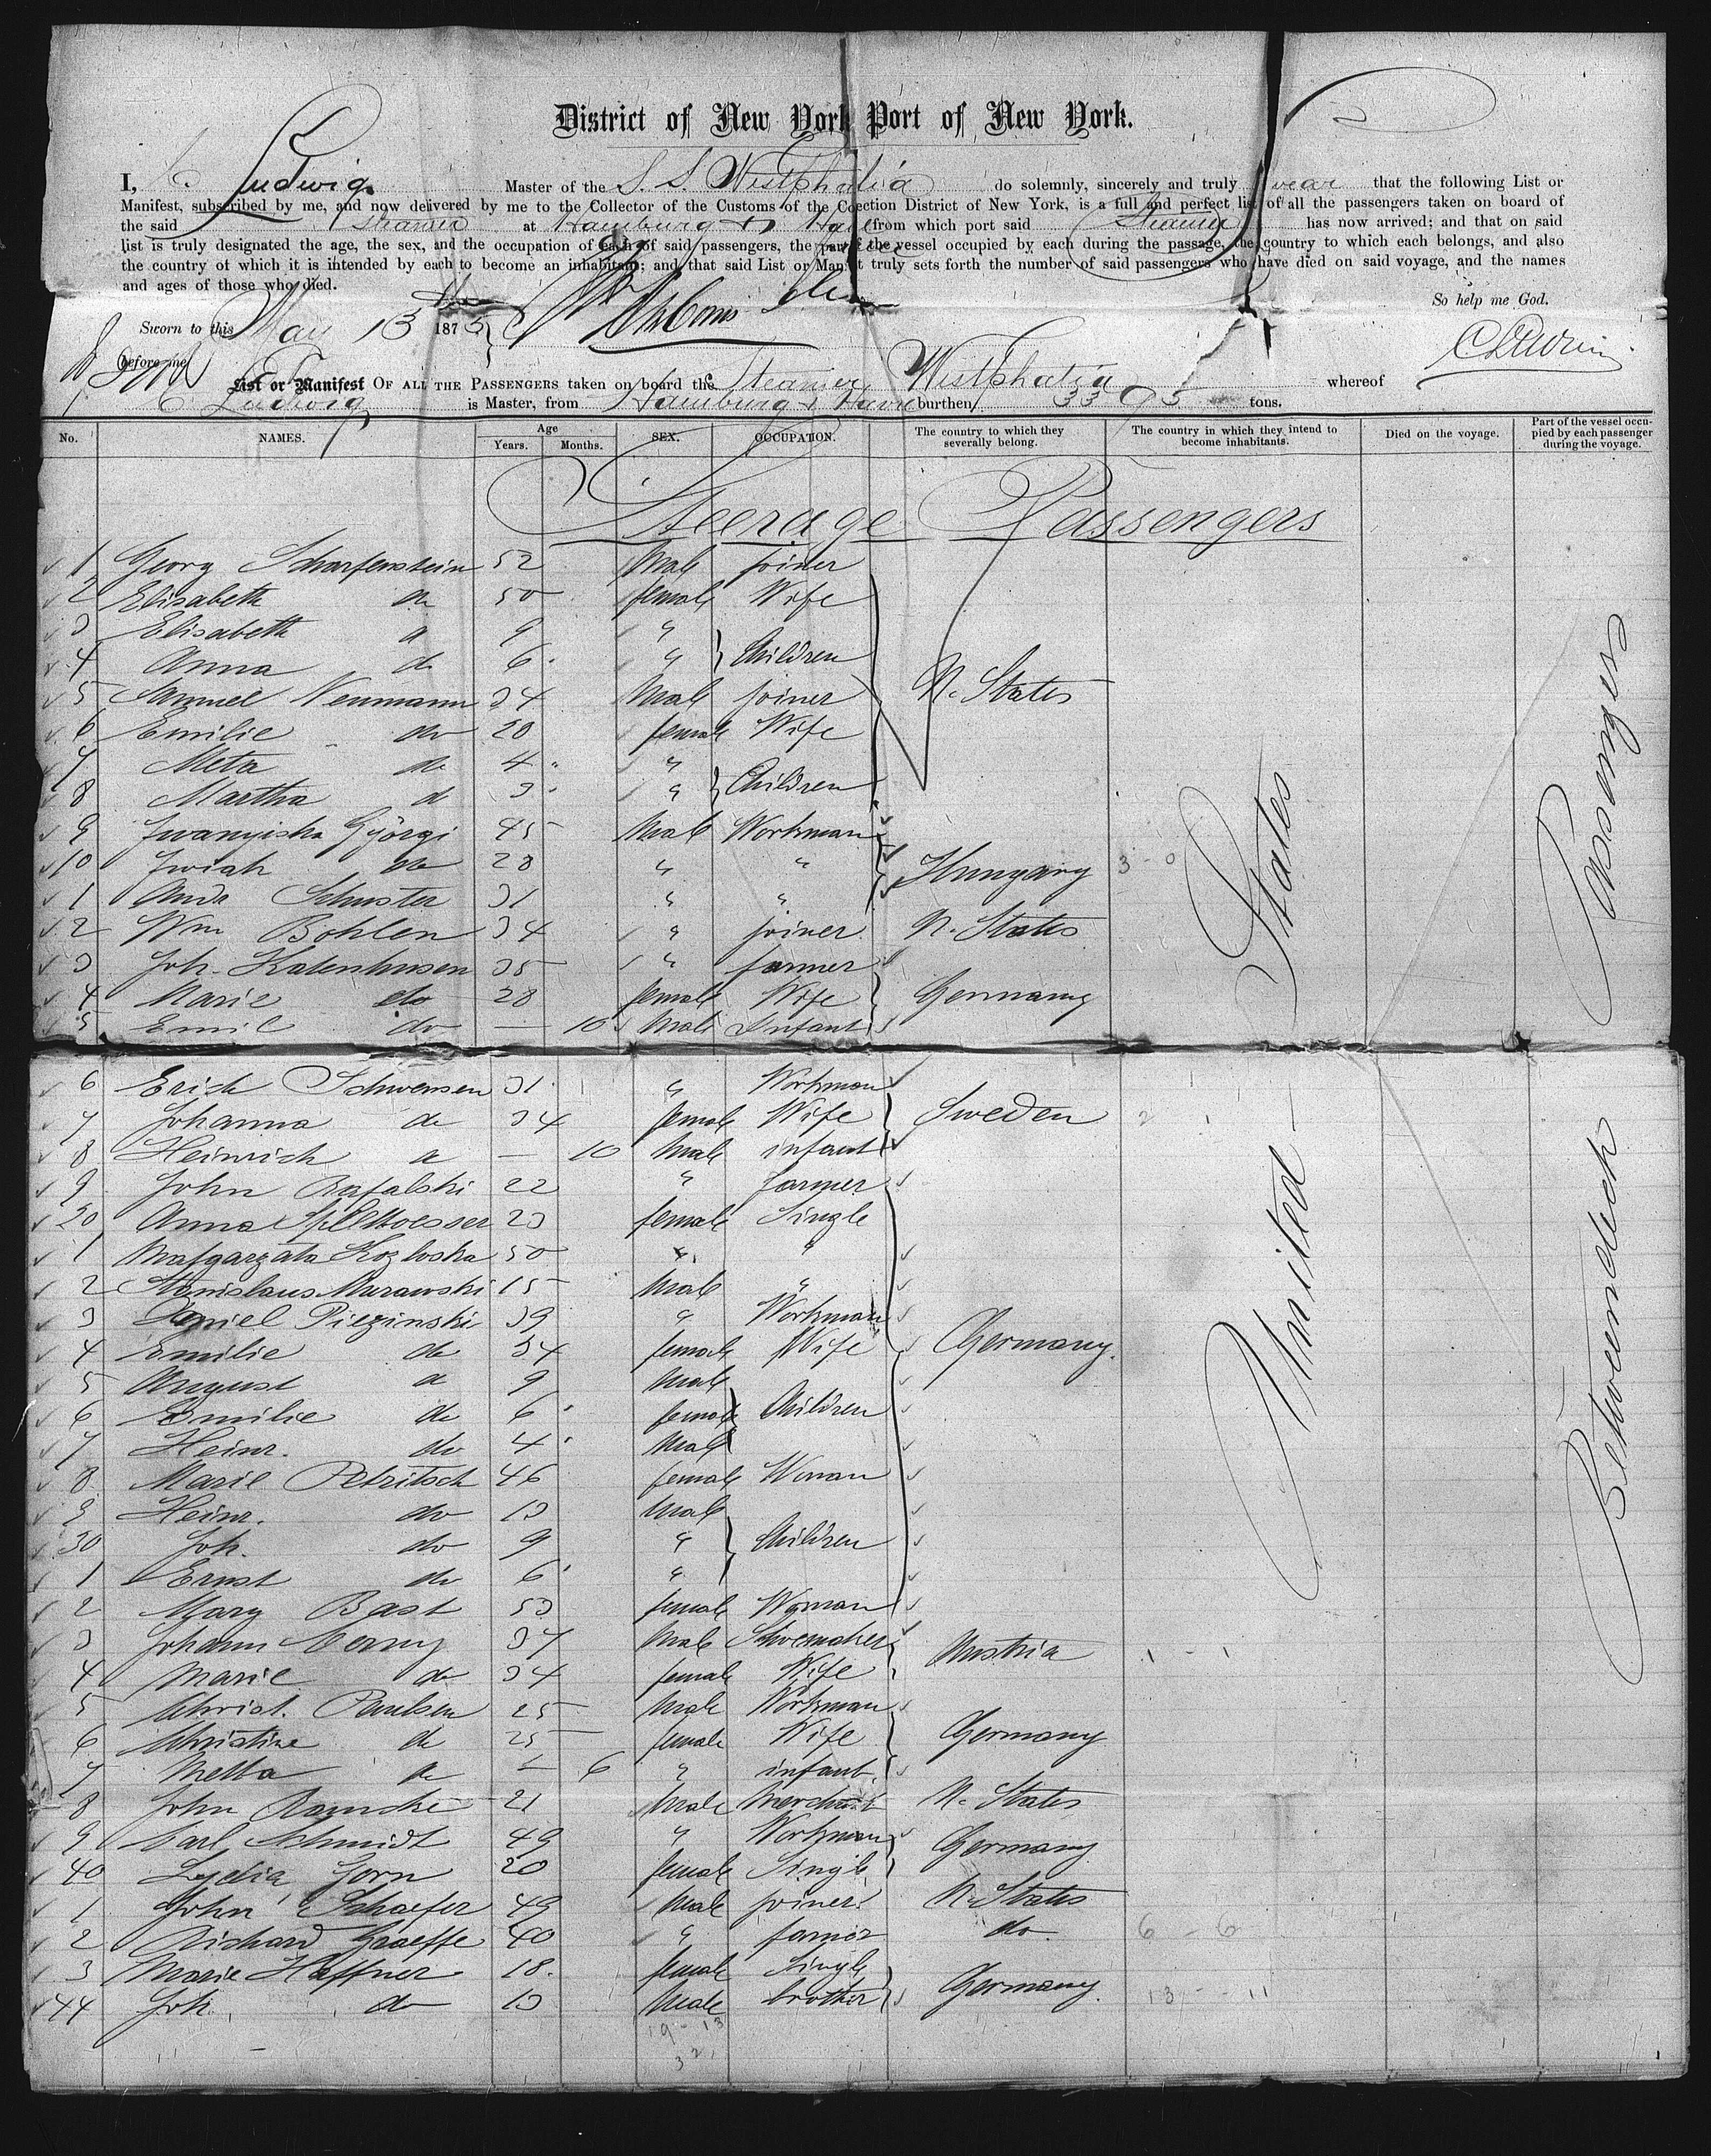 District of New York Port of New York.
I, C. Ludwig Master of the S. S. Westphalia do solemnly, sincerely and truly swear that the following List or
Manifest, subscribed by me, and now delivered by me to the Collector of the Customs of the Collection District of New York, is a full and perfect list of all the passengers taken on board of
the said Steamer at Hamburg & Havre from which port said Steamer has now arrived; and that on said
list is truly designated the age, the sex, and the occupation of each of said passengers, the part of the vessel occupied by each during the passage, the country to which each belongs, and also
the country of which it is intended by each to become an inhabitant; and that said List or Manifest truly sets forth the number of said passengers who have died on said voyage, and the names
and ages of those who died.
So help me God.
Sworn to this May 13 1875
before me
C Ludwig
List or Manifest OF ALL THE PASSENGERS taken on board the Steamer Westphalia whereof
C. Ludwig is Master, from Hamburg & Havre burthen 3395 tons.
No. NAMES. Age Years. Months. SEX. OCCUPATION. The country to which they severally belong. The country in which they intend to become inhabitants. Died on the voyage. Part of the vessel occupied by each passenger during the voyage.
Steerage Passengers
1 Georg Scharfenstein 52 Male joiner
2 Elisabeth do 50 female Wife
3 Elisabeth do 9 "
4 Anna do 6 " Children
5 Samuel Neumann 34 Male joiner U. States
6 Emilie do 28 female Wife
7 Meta do 4 "
8 Martha do 3 " Children
9 Györgi 45 Male Workman
10 do 28 " " Hungary 3 - 0
1 Andr Schuster 31 " "
2 Wm Bohlen 34 " joiner U. States
3 Joh. Katenhusen 35 " farmer
4 Marie do 28 female Wife Germany
5 Emil do — 10 Male Infant
6 Erich Schwensen 31 " Workman
7 Johanna do 34 female Wife Sweden 2 1
8 Heinrich do — 10 Male infant
9 John Rafalski 22 " farmer
20 Anna 23 female Single
1 Malgarzata Kozloska 50 " "
2 Stanislaus Murawski 15 Male "
3 Daniel Piezinski 39 " Workman
4 Emilie do 34 female Wife Germany.
5 August do 9 Male
6 Emilie do 6 female Children
7 Heinr. do 4 Male
8 Marie Petritsch 46 female Woman
9 Heinr. do 13 Male
30 Joh. do 9 " Children
1 Ernst do 6 "
2 Mary Bast 53 female Woman
3 Johann Cerny 37 Male Shoemaker Austria 1 - 1
4 Marie do 34 female Wife
5 Christ. Paulsen 25 Male Workman
6 Christine do 25 female Wife Germany
7 Metta do — 6 " infant
8 John 21 Male Merchant U. States
9 Carl Schmidt 49 " Workman Germany
40 Lydia Jorn 20 female Single
1 John Schaefer 49 Male joiner U. States
2 Richard Graeffe 40 " farmer do. 6 - 6
3 Marie Haffner 18 female Single
44 Joh. do 13 Male brother Germany. 13 - 11
19 - 13
32
United States
Betweendeck Passengers